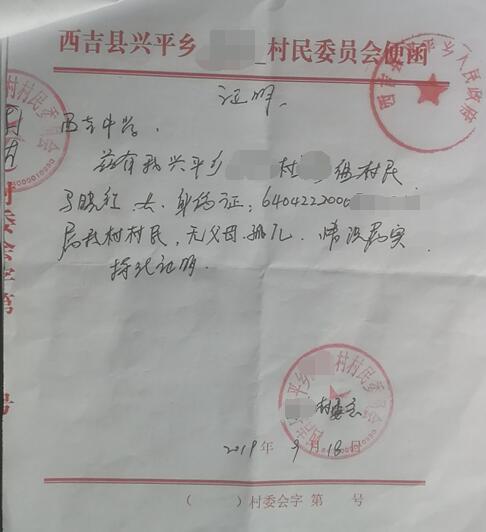 西吉县兴平乡 村民委员会便函
证明
西吉中学,
兹有我兴平乡 村 组村民
马晓红,女,身份证:6404222000
属我村村民,无父母,孤儿,情况属实
特此证明.
村委会
2019年9月18日
( )村委会字 第 号
西吉县兴平乡人民政府
村村民委员会
西吉县兴平乡 村村民委员会
村委会字第
号